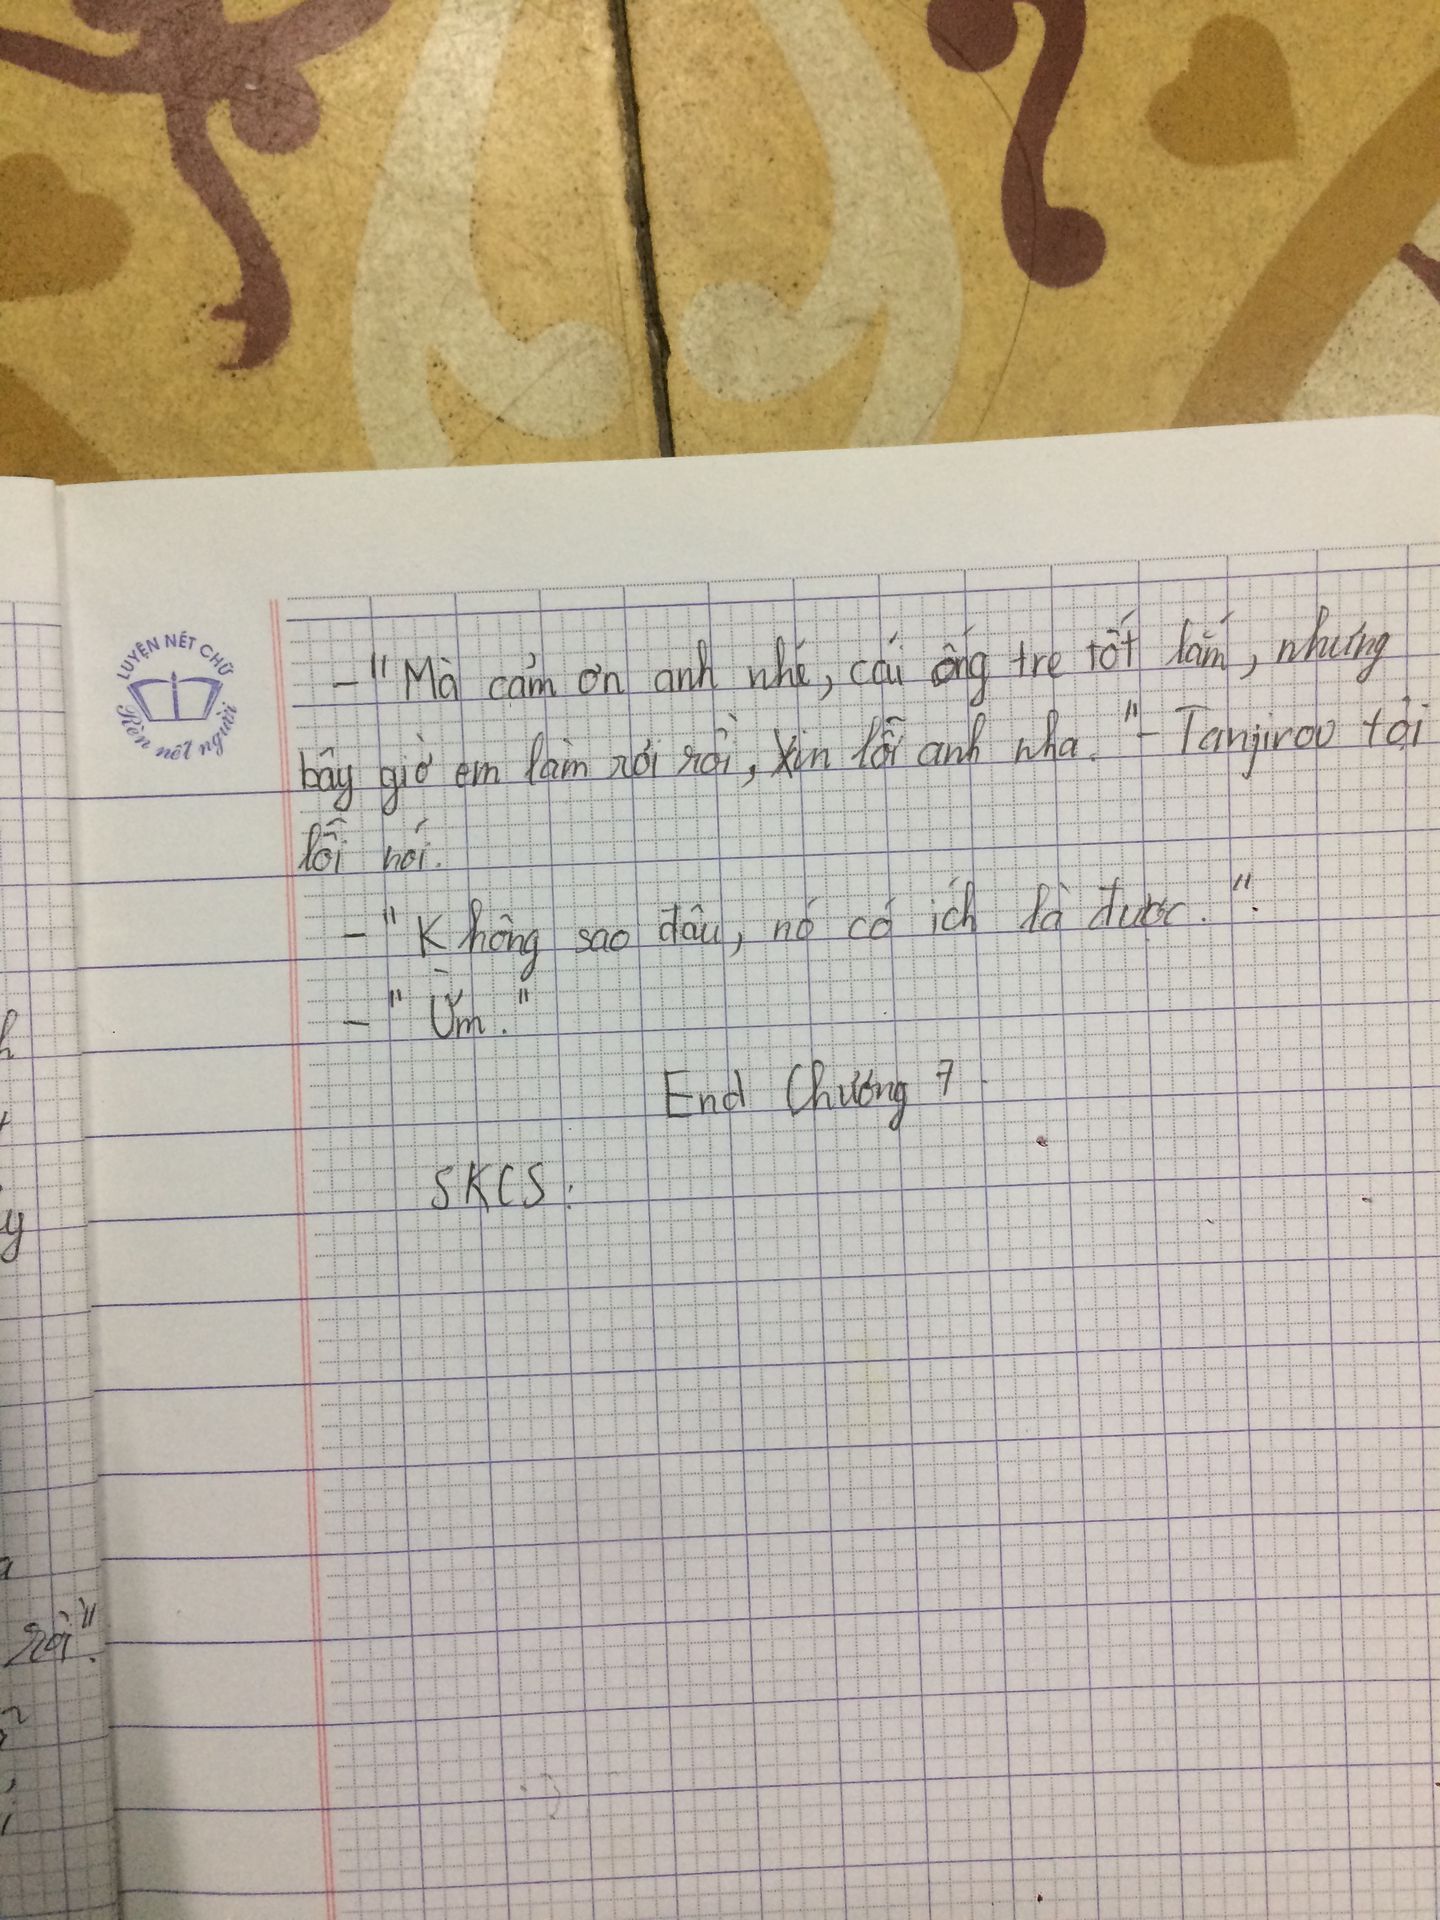 LUYỆN NÉT CHỮ
Rèn nết người
- "Mà cảm ơn anh nhé, cái ống tre tốt lắm, nhưng
bây giờ em làm rơi rồi, xin lỗi anh nha." - Tanjiroo tội
lỗi nói.
- "Không sao đâu, nó có ích là được.".
- "Ừm."
End Chương 7
SKCS:
rồi".